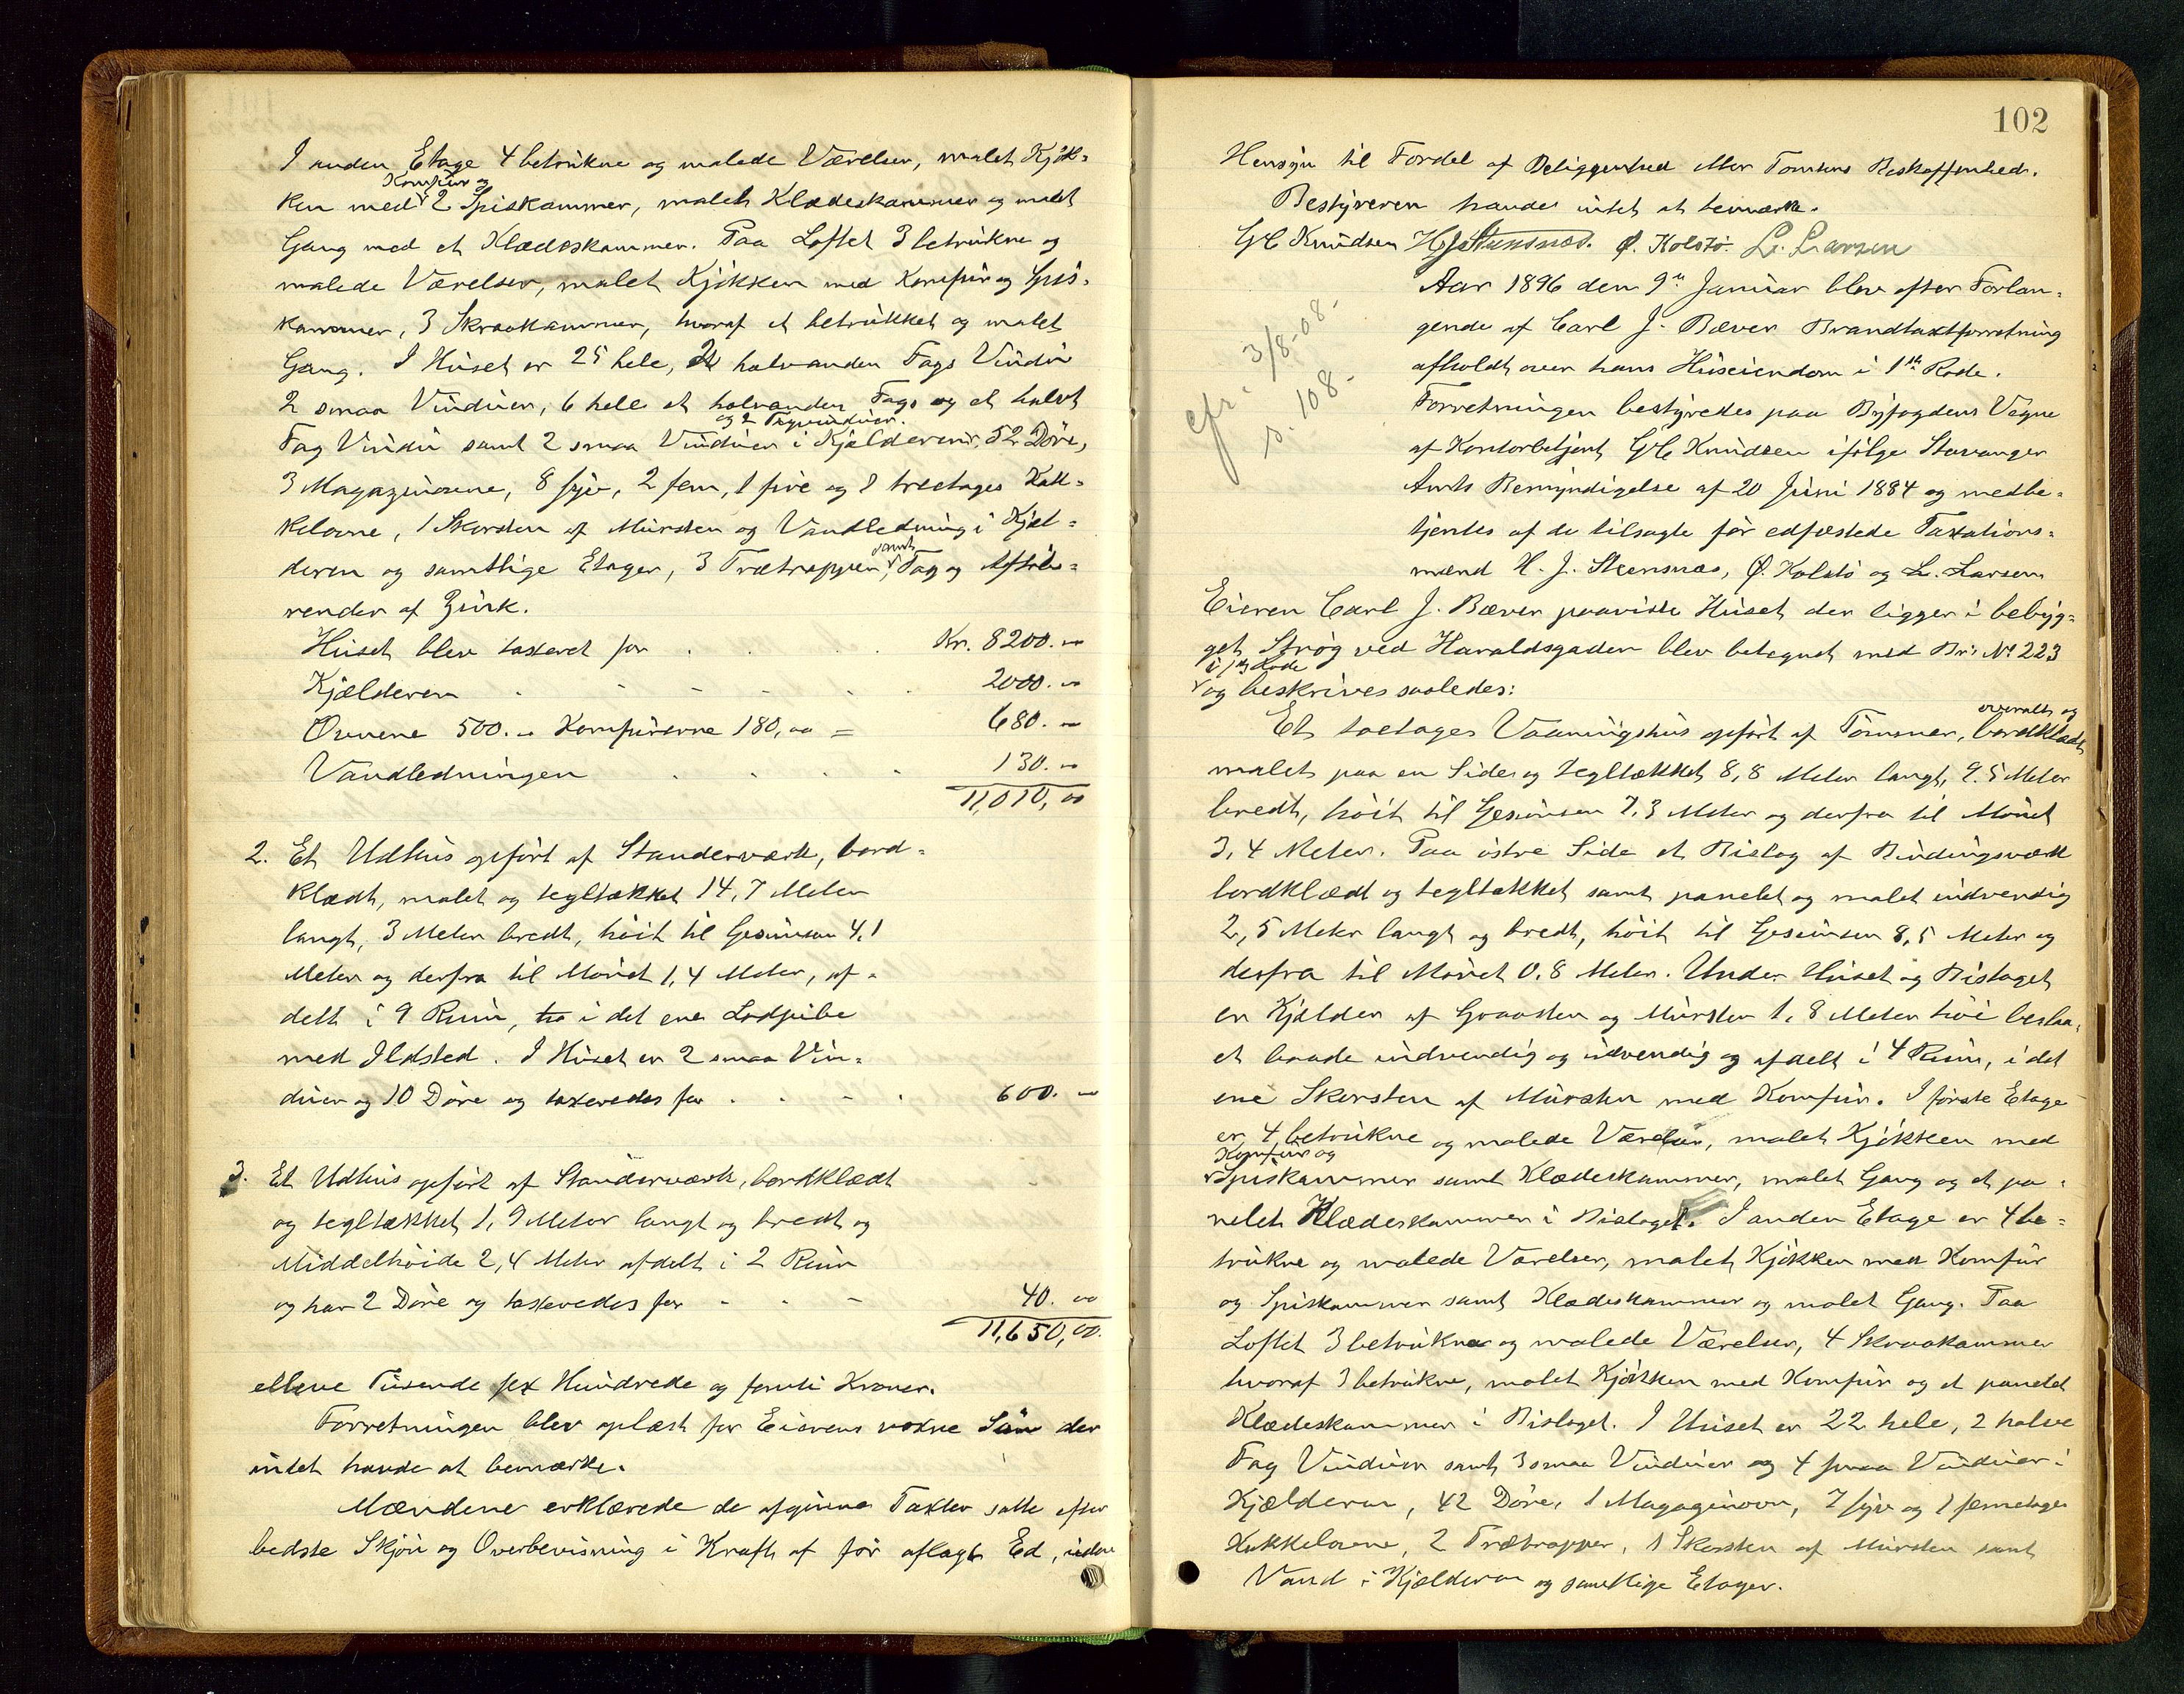 I anden Etage 4 betrukne og malede Værelser, malet Kjøk-
Komfur og
ken med 2 Spiskammer, malet Klædeskammer og malet
Gang med et Klædeskammer. Paa Loftet 3 betrukne og
malede Værelser, malet Kjøkken med Komfur og Spis-
kammer, 3 Skraakammer, hvoraf et betrukket og malet
Gang. I Huset er 25 hele, halvanden Fags Vindu
2 smaa Vinduer, 6 hele et halvanden Fags og et halvt
og 2 Tagvinduer.
Fag Vindu samt 2 smaa Vinduer i Kjælderen, 52 Døre,
3 Magazinovne, 8 syv, 2 fem, 1 fire og 1 treetages Kak-
kelovne, 1 Skorsten af Mursten og Vandledning i Kjæl-
samt
deren og samtlige Etager, 3 Trætrapper, Tag og Afløbs-
render af Zink.
Huset blev taxeret for . . . Kr. 8200. 00
Kjælderen - - - - - . . 2000. 00
Ovnene 500. 00 Komfurerne 180,00 = 680. 00
Vandledningen . . . . 130. 00
11,010,00
2. Et Udhus opført af Standerværk, bord-
klædt, malet og tegltækket 14,7 Meter
langt, 3 Meter bredt, høit til Gesimsen 4,1
Meter og derfra til Mønet 1,4 Meter, af-
delt i 9 Rum, i det ene Lodpibe
med Ildsted. I Huset er 2 smaa Vin-
duer og 10 Døre og taxeredes for . - - . 600. 00
3. Et Udhus opført af Standerværk, bordklædt
og tegltækket 1,9 Meter langt og bredt og
Middelhøide 2,4 Meter afdelt i 2 Rum
og har 2 Døre og taxeredes for - - - 40. 00
11,650,00.
elleve Tusende sex Hundrede og femti Kroner.
Forretningen blev oplæst for Eierens voxne Søn der
intet havde at bemærke.
Mændene erklærede de afgivne Taxter satte efter
bedste Skjøn og Overbevisning i Kraft af før aflagt Ed, uden
102
Hensyn til Fordel af Beliggenhed eller Tomtens Beskaffenhed.
Bestyreren havde intet at bemærke.
G C Knudsen H J Steensnæs. Ø. Kolstø. L. Larsen
Aar 1896 den 9de Januar blev efter Forlan-
gende af Carl J. Bæver Brandtaxtforretning
afholdt over hans Huseiendom i 1ste Rode.
cfr. 3/8-08-
s. 108-
Forretningen bestyredes paa Byfogdens Vegne
af Kontorbetjent G C Knudsen ifølge Stavanger
Amts Bemyndigelse af 20 Juni 1884 og medbe-
tjentes af de tilsagte før edfæstede Taxations-
mænd H. J. Steensnæs, Ø. Kolstø og L. Larsen
Eieren Carl J. Bæver paaviste Huset der ligger i bebyg-
get Strøg ved Haraldsgaden blev betegnet med Br: No 223
i 1ste Rode
og beskrives saaledes:
overalt og
Et toetages Vaaningshus opført af Tømmer, bordklædt
malet paa en Side og tegltækket 8,8 Meter langt, 9.5 Meter
bredt, høit til Gesimsen 7,3 Meter og derfra til Mønet
3,4 Meter. Paa østre Side et Bislag af Bindingsværk
bordklædt og tegltækket samt panelet og malet indvendig
2,5 Meter langt og bredt, høit til Gesimsen 8,5 Meter og
derfra til Mønet 0,8 Meter. Under Huset og Bislaget
er Kjælder af Graasten og Mursten 1,8 Meter høi beslaa-
et baade indvendig og udvendig og afdelt i 4 Rum, i det
ene Skorsten af Mursten med Komfur. I første Etage
er 4 betrukne og malede Værelser, malet Kjøkken med
Komfur og
Spiskammer samt Klædeskammer, malet Gang og et pa-
nelet Klædeskammer i Bislaget. I anden Etage er 4 be-
trukne og malede Værelser, malet Kjøkken med Komfur
og Spiskammer samt Klædeskammer og malet Gang. Paa
Loftet 3 betrukne og malede Værelser, 4 Skraakammer
hvoraf 3 betrukne, malet Kjøkken med Komfur og et panelet
Klædeskammer i Bislaget. I Huset er 22 hele, 2 halve
Fag Vinduer samt 3 smaa Vinduer og 4 smaa Vinduer i
Kjælderen, 42 Døre, 1 Magazinovn, 7 syv og 1 femetages
Kakkelovne, 2 Trætrapper, 1 Skorsten af Mursten samt
Vand i Kjælderen og samtlige Etager.